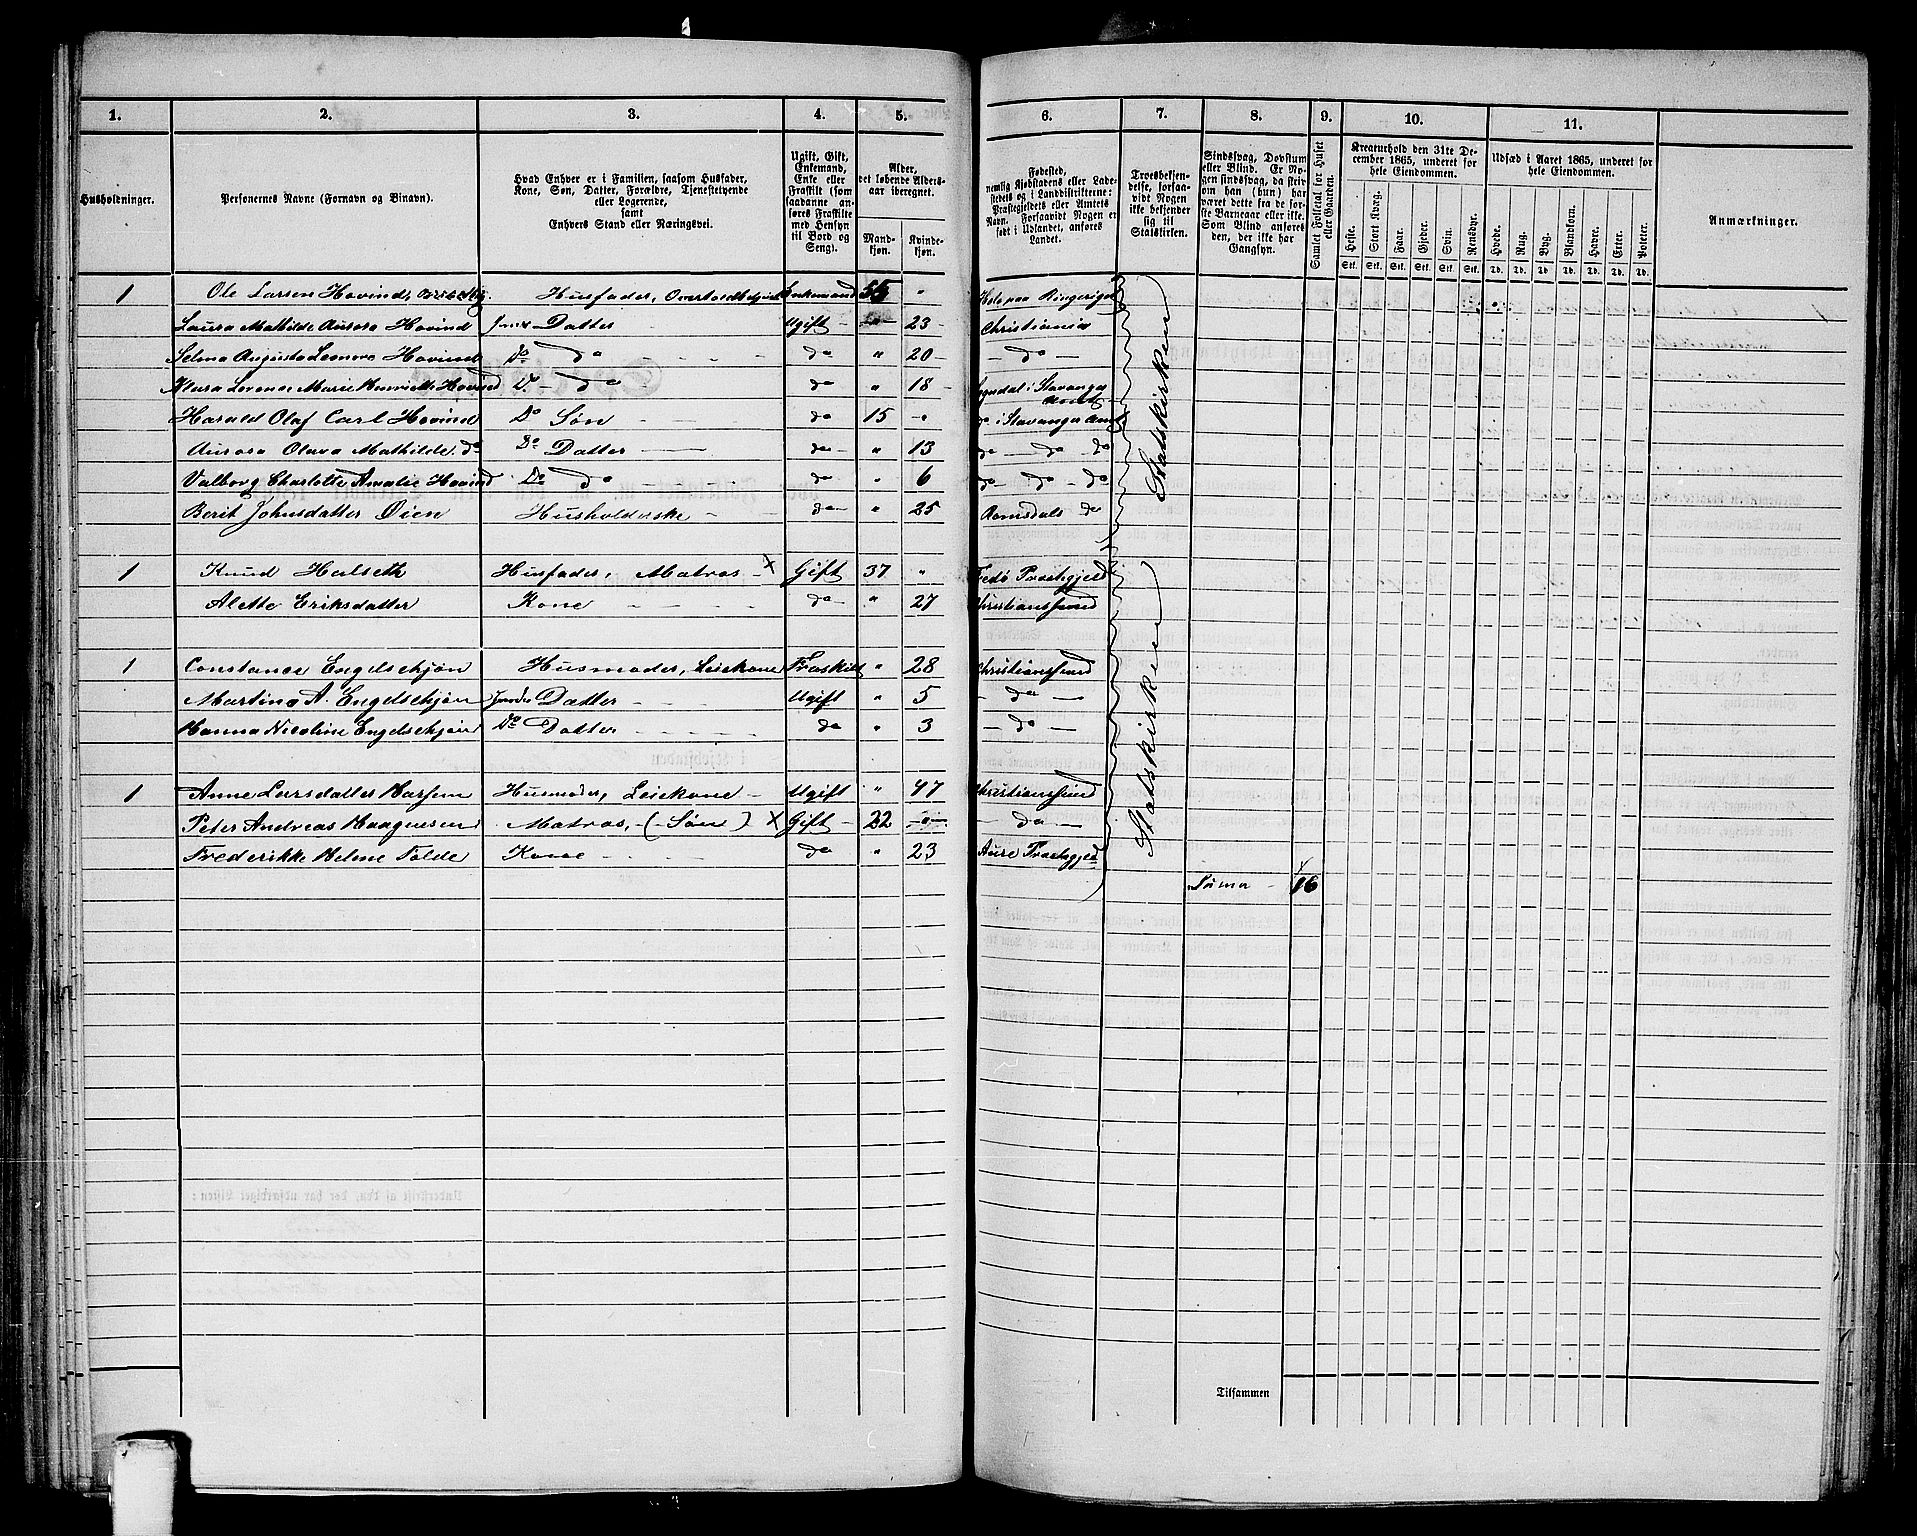 1. 2. 3. 4. 5. 6. 7. 8. 9. 10. 11.
Husholdninger.
Personernes Navne (Fornavn og Binavn).
Hvad Enhver er i Familien, saasom Husfader,
Kone, Søn, Datter, Forældre, Tjenestetyende
eller Logerende,
samt
Enhvers Stand eller Næringsvei.
Ugift, Gift,
Enkemand,
Enke eller
Fraskilt (som
saadanne an-
føres Fraskilte
med Hensyn
til Bord og
Seng).
Alder,
det løbende Alders-
aar iberegnet.
Mand-
kjøn.
Kvinde-
kjøn.
Fødested,
nemlig Kjøbstadens eller Lade-
stedets og i Landdistrikterne:
Præstegjeldets eller Amtets
Navn. Forsaavidt Nogen er
født i Udlandet, anføres
Landet.
Troesbekjen-
delse, forsaa-
vidt Nogen
ikke bekjender
sig til
Statskirken.
Sindssvag, Døvstum
eller Blind. Er No-
gen sindssvag, da skri-
ves om han (hun) har
været dette fra de før-
ste Barneaar eller ikke.
Som Blind anføres
den, der ikke har
Gangsyn.
Samlet Folketal for Huset
eller Gaarden.
Kreaturhold den 31te De-
cember 1865, underet for
hele Eiendommen.
Heste. Stort Kvæg. Faar. Gjeder. Svin. Rensdyr.
Stk. Stk. Stk. Stk. Stk. Stk.
Udsæd i Aaret 1865, underet for
hele Eiendommen.
Hvede. Rug. Byg. Blandkorn. Havre. Erter. Poteter.
Td. Td. Td. Td. Td. Td. Td.
Anmærkninger.
1 Ole Larsen Hovind, Husfader, Overtoldbetjent Enkemand 55 " Hole paa Ringerige
Laura Mathilde Aurora Hovind Datter Ugift " 23 Christiania
Selma Augusta Leonora Hovind Do da da " 20 da
Klara Lovense Marie Henriette Hovind Do da da " 18 Sogndal i Stavanger Amt
Harald Olaf Carl Hovind Do Søn da 15 " do i Stavanger Amt
Aurora Olava Mathilde do Do Datter da " 13 da da do
Valborg Charlotte Amalie Hovind Do da da " 6 da da do
Berit Johnsdatter Øien Husholderske da " 25 Romsdals do
Statskirken
1 Knud Halseth Husfader, Matros X Gift 37 " Fredø Præstegjeld
Alette Eriksdatter Kone da " 27 Christianssund
1 Constance Engelschjøn Husmoder, Leiekone Fraskilt " 28 Christianssund
Martina A. Engelschjøn Datter Ugift " 5 da
Hanna Nicoline Engelschjøn Do Datter da " 3 da
1 Anne Larsdatter Husmoder, Leiekone Ugift " 47 Christianssund
Peter Andreas Haagensen Matros, (Søn) X Gift 22 da
Frederikke Helene Folde Kone da " 23 Aure Præstegjeld
Statskirken
Suma 16
Tilsammen